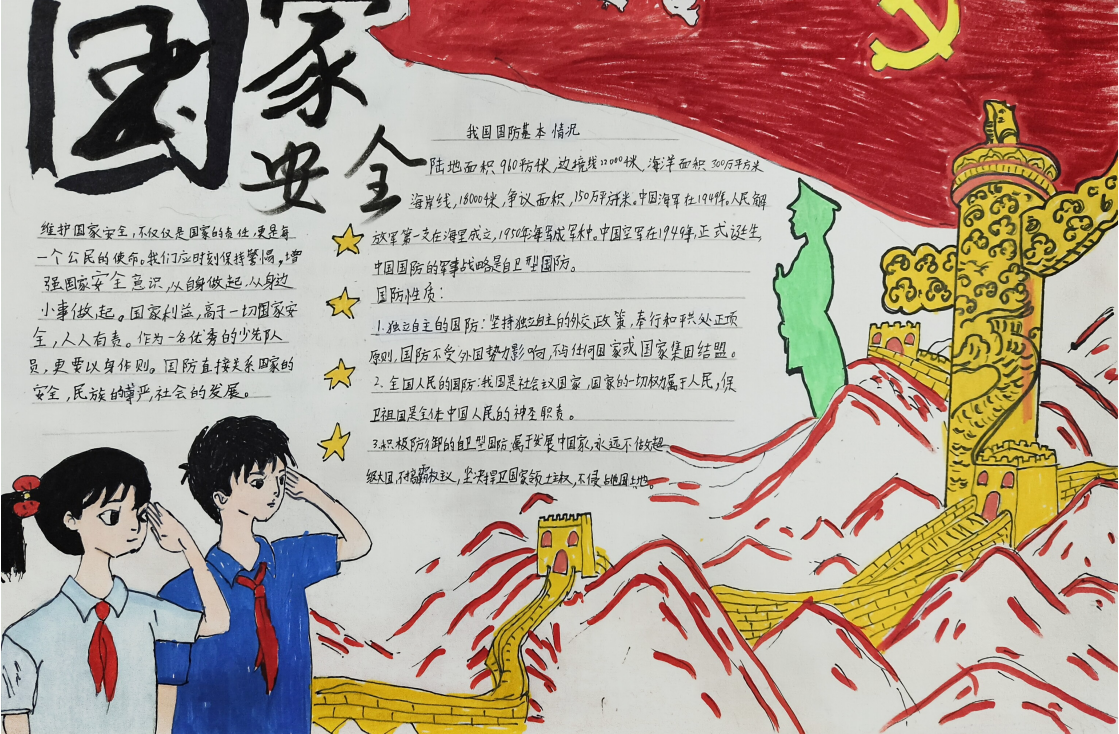 国家
安全
维护国家安全,不仅仅是国家的责任,更是每
一个公民的使命。我们应时刻保持警惕,增
强国家安全意识,从自身做起,从身边
小事做起。国家利益,高于一切国家安
全,人人有责。作为一名优秀的少先队
员,更要以身作则。国防直接关系国家的
安全,民族的尊严,社会的发展。
我国国防基本情况
陆地面积960万 边境线22000 海洋面积300万平方米
海岸线,18000 争议面积,150万平方米。中国海军在1949年,人民解
放军第一支在海里成立,1950年海军成军种。中国空军在1949年,正式诞生,
中国国防的军事战略是自卫型国防。
国防性质:
1.独立自主的国防:坚持独立自主的外交政策,奉行和平共处五项
原则,国防不受外国势力影响,不与任何国家或国家集团结盟。
2.全国人民的国防:我国是社会主义国家,国家的一切权力属于人民,保
卫祖国是全体中国人民的神圣职责。
3.积极防御的自卫型国防 属于发展中国家,永远不做超
级大国,不搞霸权主义,坚决捍卫国家领土主权,不侵占他国土地。